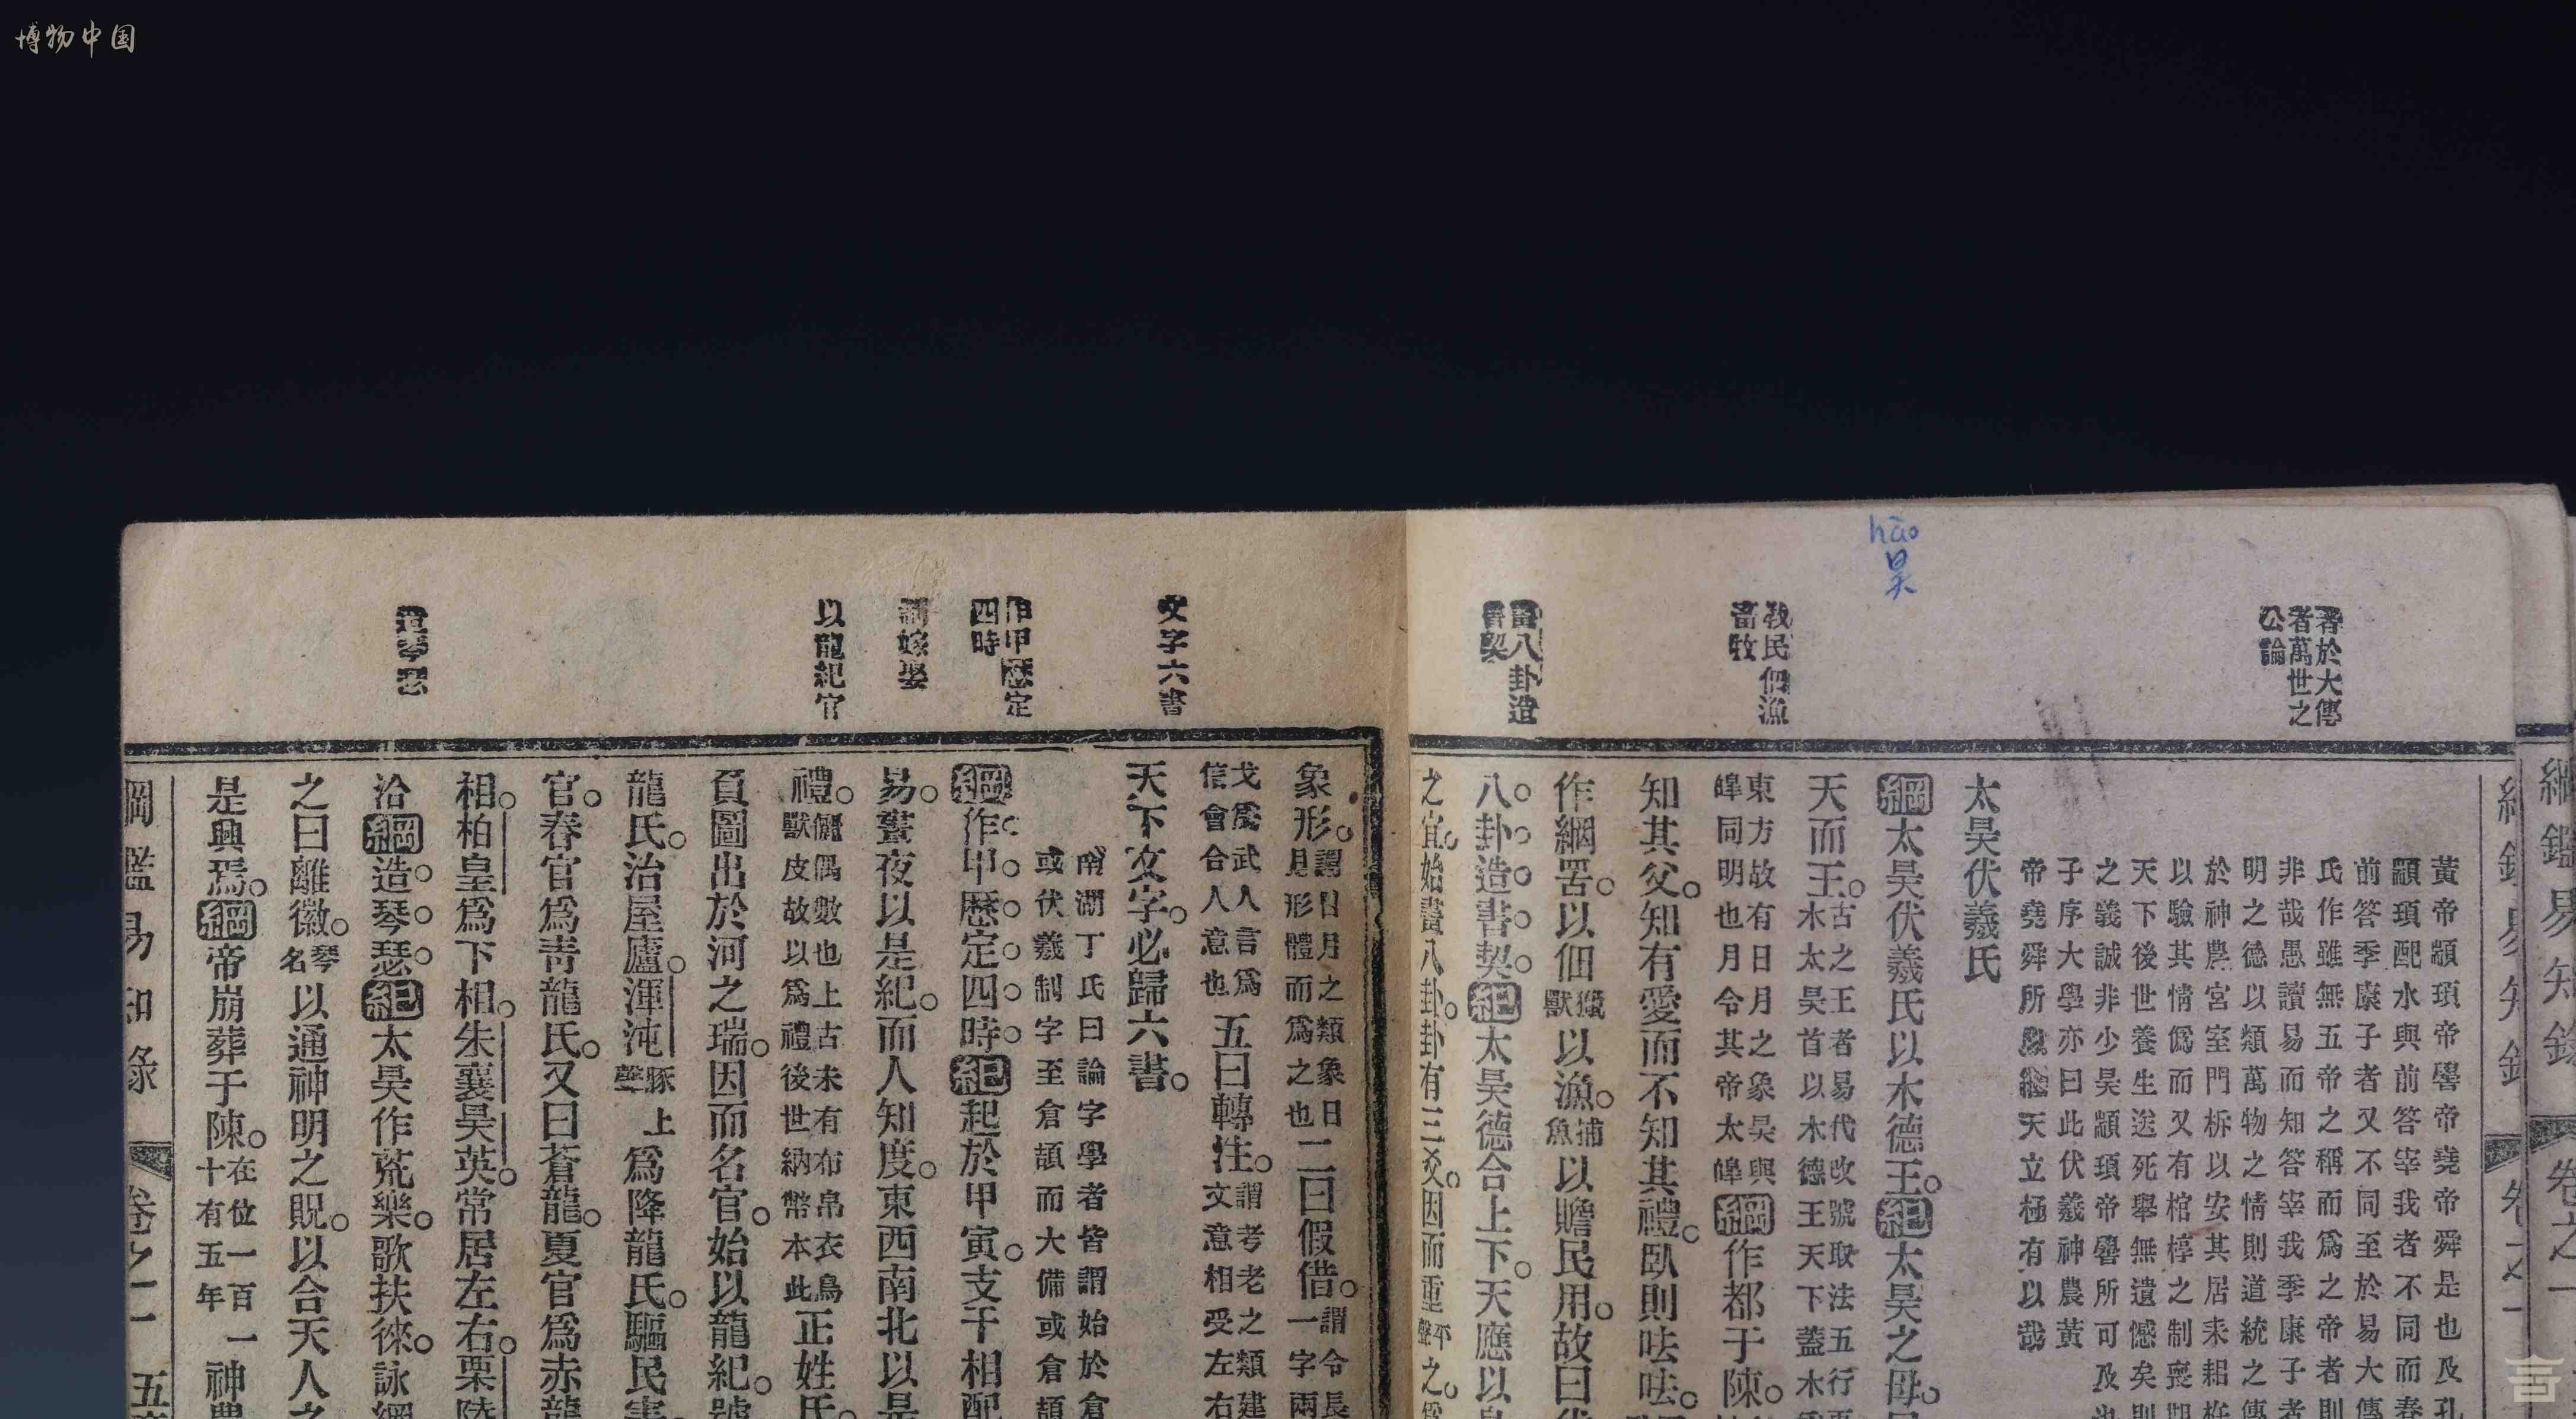 博物中国
hào
昊
者於大傳
者萬世之
公論
教民佃漁
畜牧
畫八卦造
書契
黃帝顓頊帝嚳帝堯帝舜是也及孔
顓頊配水與前答宰我者不同而春
前答季康子者又不同至於易大傳
氏作雖無五帝之稱而爲之帝者則
非哉愚讀易而知答宰我季康子者
明之德以類萬物之情則道統之傳
於神農宮室門柝以安其居耒耜杵
以驗其情僞而又有棺槨之制喪期
天下後世養生送死舉無遺憾矣則
之義誠非少昊顓頊帝嚳所可及也
子序大學亦曰此伏羲神農黃
帝堯舜所以繼天立極有以哉
太昊伏羲氏
綱太昊伏羲氏以木德王。紀太昊之母。
天而王。古之王者易代改號取法五行
木太昊首以木德王天下蓋木
東方故有日月之象昊與
皡同明也月令其帝太皡綱作都于陳。
知其父。知有愛而不知其禮。臥則呿呿。
作網罟。以佃獵獸以漁。捕魚以贍民用。故曰
八卦造書契。紀太昊德合上下。天應以
之宜。始畫八卦。卦有三爻。因而重平聲之。
綱鑑易知錄 卷之一
文字六書
作甲歷定
四時
制嫁娶
以龍紀官
造琴瑟
象形。謂日月之類象日
月形體而爲之也二曰假借。謂令長
一字兩
戈爲武人言爲
信會合人意也五曰轉注。謂考老之類建
文意相受左右
天下文字。必歸六書。
南湖丁氏曰論字學者皆謂始於倉
或伏羲制字至倉頡而大備或倉頡
綱作甲歷定四時。紀起於甲寅。支干相配
易。晝夜以是紀。而人知度。東西南北以是
禮。儷偶數也上古未有布帛衣鳥
獸皮故以爲禮後世納幣本此正姓氏。
負圖出於河之瑞。因而名官。始以龍紀。號
龍氏。治屋廬。渾沌豚上聲爲降龍氏。驅民害
官。春官爲靑龍氏。又曰蒼龍。夏官爲赤龍
相。柏皇爲下相。朱襄昊英。常居左右。栗陸
洽綱造琴瑟。紀太昊作荒樂。歌扶徠。詠網
之曰離徽。琴名以通神明之貺。以合天人之
是興焉。綱帝崩葬于陳。在位一百一
十有五年神農
綱鑑易知錄 卷之一 五